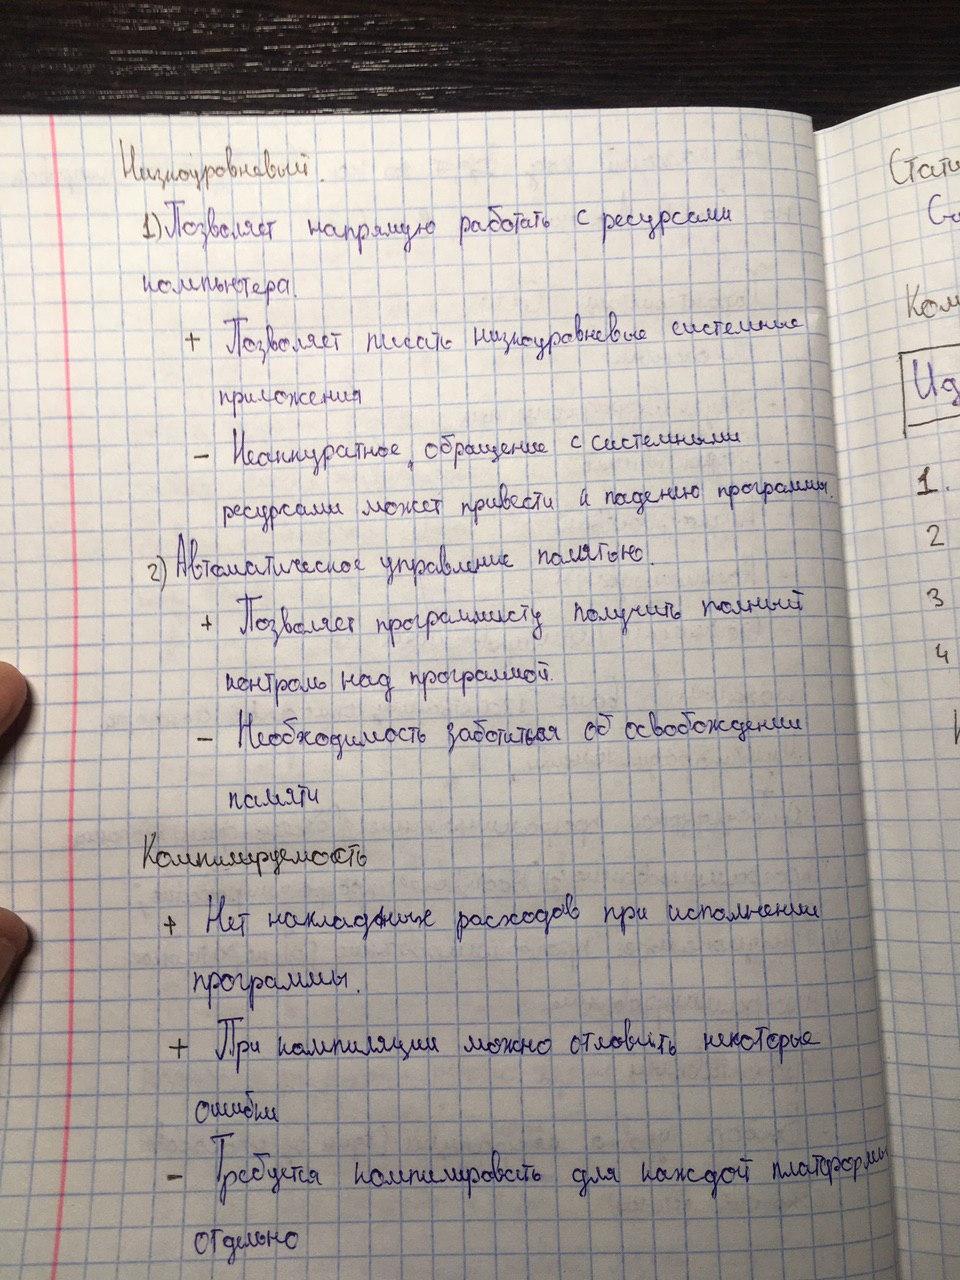 Низкоуровневый.
1) Позволяет напрямую работать с ресурсами
компьютера.
+ Позволяет писать низкоуровневые системные
приложения
- Неаккуратное обращение с системными
ресурсами может привести к падению программы.
2) Автоматическое управление памятью.
+ Позволяет программисту получить полный
контроль над программой.
- Необходимость заботиться об освобождении
памяти
Компилируемость
+ Нет накладных расходов при исполнении
программы.
+ При компиляции можно отловить некоторые
ошибки
- Требуется компилировать для каждой платформы
отдельно
Стати
Ком
Ид
1.
2
3
4